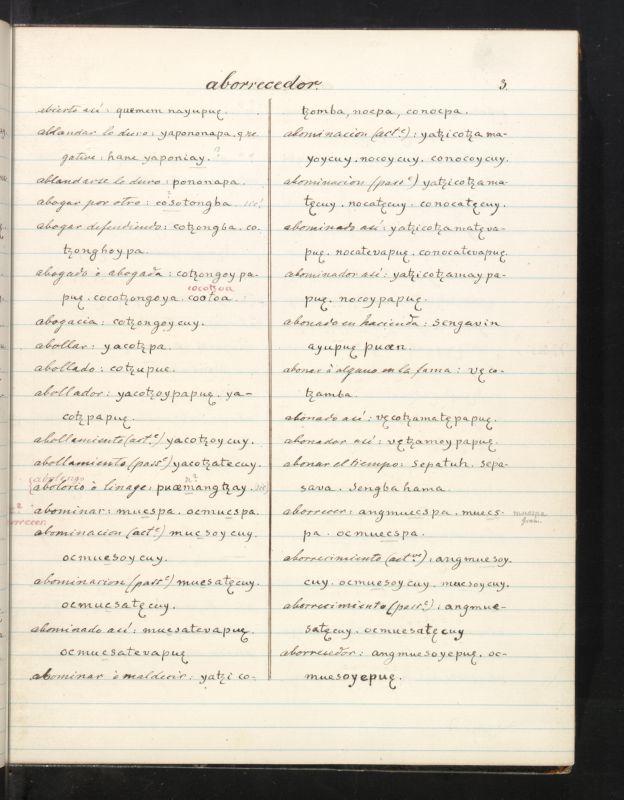 aborrecedor.
3.
abierto así: quemem nayupuę.
ablandar lo duro: yapononapa. q ze
gative: hane yaponiay.
ablandarse lo duro: pononapa.
abogar por otro: cosotongba. sic!
abogar defendiendo: cotzongba. co-
tzongboypa.
abogado ò abogada: cotzongoypa-
cocotzoa
puę. cocotzongoya. cootoa.
abogacia: cotzongoycuy.
abollar: yacotzpa.
abollado: cotzupue.
abollador: yacotzoypapuę. ya-
cotzpapuę.
abollamiento (act.e) yacotzoycuy.
abollamiento (pass.e) yacotzatecuy.
abolengo
abolorio ò linage: puæmangtzay. sic
abominar: muespa. ocmuespa.
abominacion (act.e) muesoycuy.
ocmuesoycuy.
abominacion (pass.e) muesatęcuy.
ocmuesatęcuy.
abominado así: muesatevapuę.
ocmuesatevapuę
abominar ò maldecir: yatzico-
tzomba, nocpa, conocpa.
abominacion (act.e): yatzicotzama-
yoycuy. nocoycuy. conocoycuy.
abominacion (pass.e) yatzicotzama-
tęcuy. nocatęcuy. conocatęcuy.
abominado así: yatzicotzamatęva-
puę. nocatevapuę. conocatevapuę.
abominador así: yatzicotzamaypa-
puę. nocoypapuę.
abonado en hacienda: sengavin
ayupuę puæn.
abonar à alguno en la fama: vęco-
tzamba.
abonado así: vęcotzamatępapuę.
abonador así: vętzameypapuę.
abonar el tiempo: sepatuh. sepa-
sava. sengbahama.
aborrecer: angmuecspa. muecs-
pa. ocmuecspa.
aborrecimiento (act.ve): angmuesoy-
cuy. ocmuesoycuy. muesoycuy.
aborrecimiento (pass.e): angmue-
satęcuy. ocmuesatęcuy
aborrecedor: angmuesoyepuę. oc-
muesoyepuę.